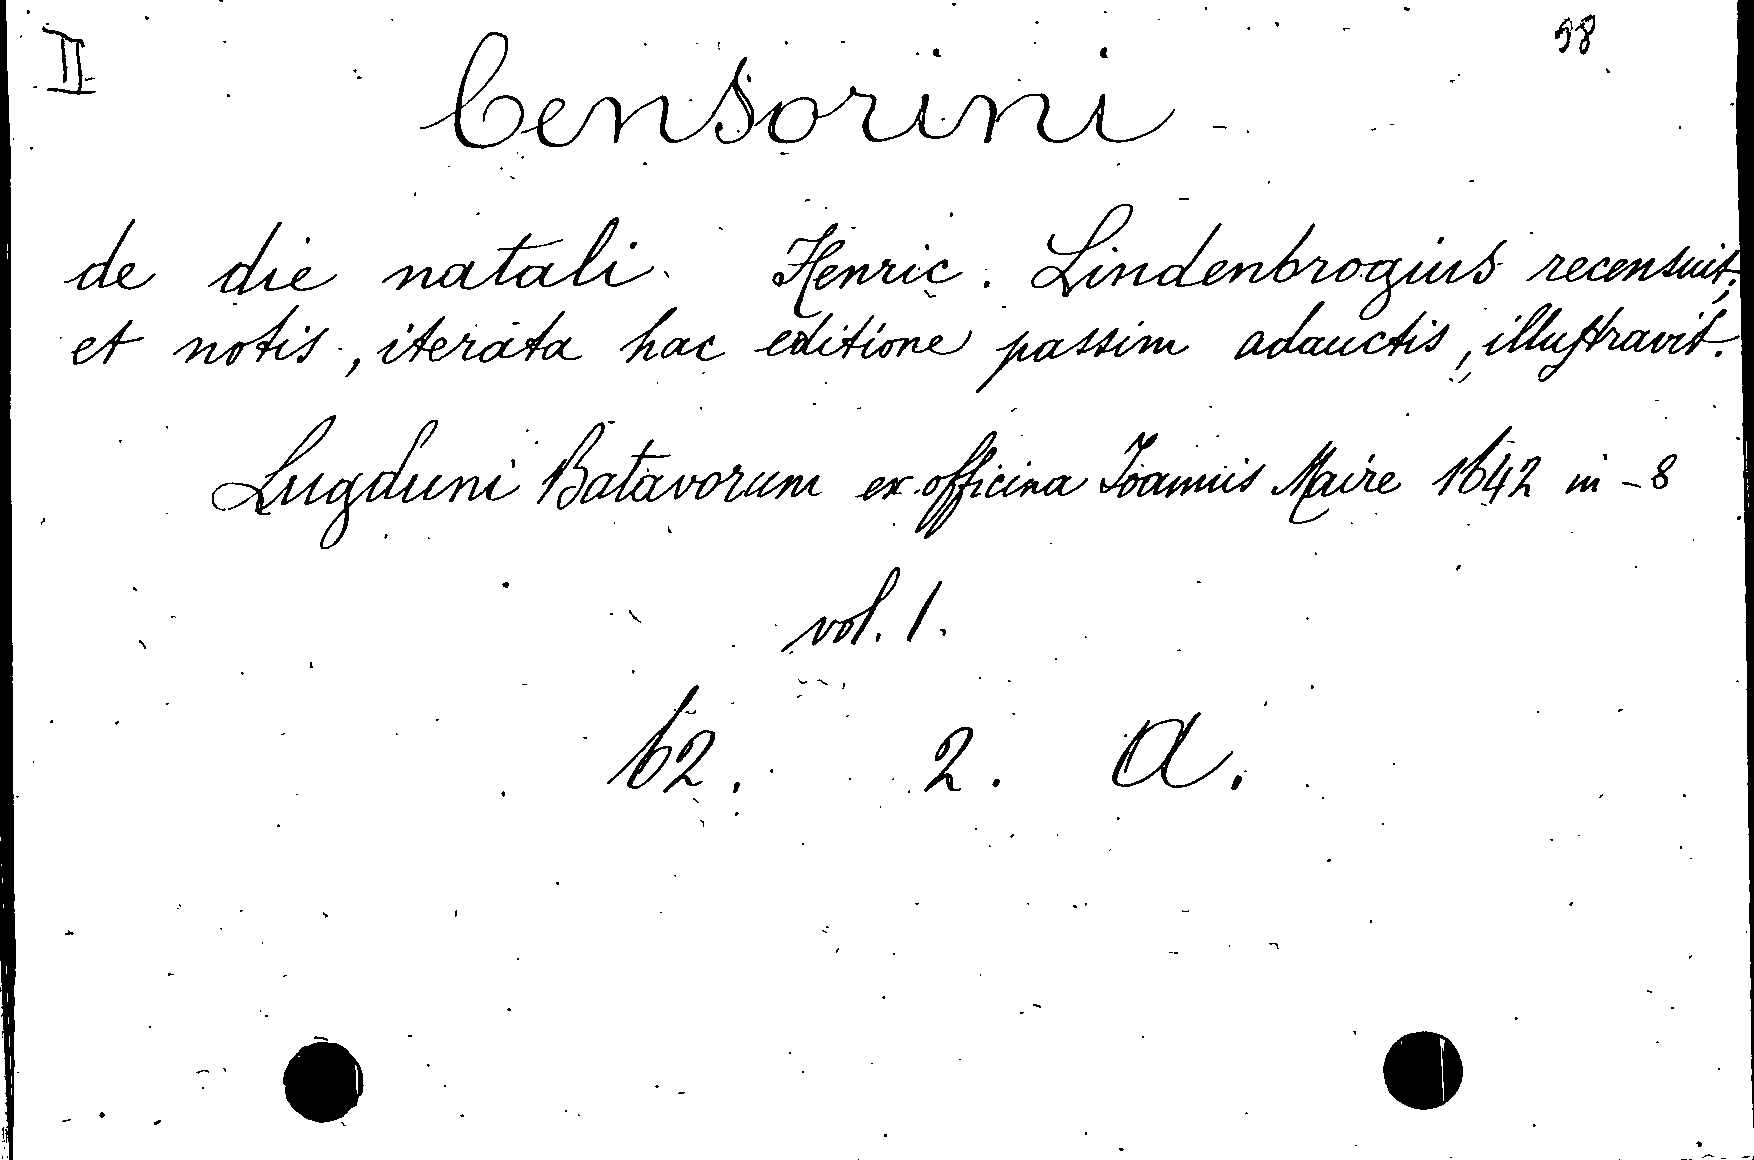 II 98
Censorini
de die natali. Henric. Lindenbrogius recensuit,
et notis, iterata hac editione passim adauctis, illustravit.
Lugduni Batavorum ex officina Ioannis Maire 1642 in-8
vol. 1.
62. 2. A.